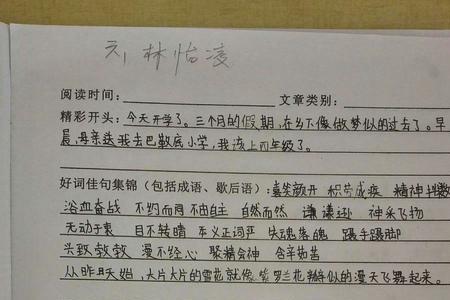 六1 林怡凌
阅读时间： 文章类别：
精彩开头：今天开学了。三个月的假期，在乡下像做梦似的过去了。早
晨，母亲送我去巴勒底小学，我该上四年级了。
好词佳句集锦（包括成语、歇后语）：喜笑颜开 积劳成疾 精神抖擞
浴血奋战 不约而同 不由自主 自然而然 谦谦逊 神采飞扬
无动于衷 目不转睛 义正词严 失魂落魄 蹑手蹑脚
兴致勃勃 漫不经心 聚精会神 含辛茹苦
从昨天开始，大片大片的雪花就像 罗兰花瓣似的漫天飞舞起来。